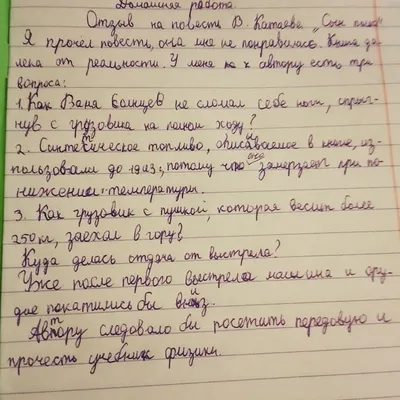 Домашняя работа.
Отзыв на повесть В. Катаева „Сын полка"
Я прочёл повесть, она мне не понравилась. Книга да-
лека от реальности. У меня к автору есть три
вопроса:
1. Как Ваня Солнцев не сломал себе ноги, спрыг-
нув с грузовика на полном ходу?
2. Синтетическое топливо, описываемое в книге, ис-
пользовали до 1943, потому что оно замерзает при по-
нижении температуры.
3. Как грузовик с пушкой, которая весит более
250 кг, заехал в гору?
Куда делась отдача от выстрела?
Уже после первого выстрела машина и ору-
дие покатились бы вниз.
Автору следовало бы посетить передовую и
прочесть учебник физики.